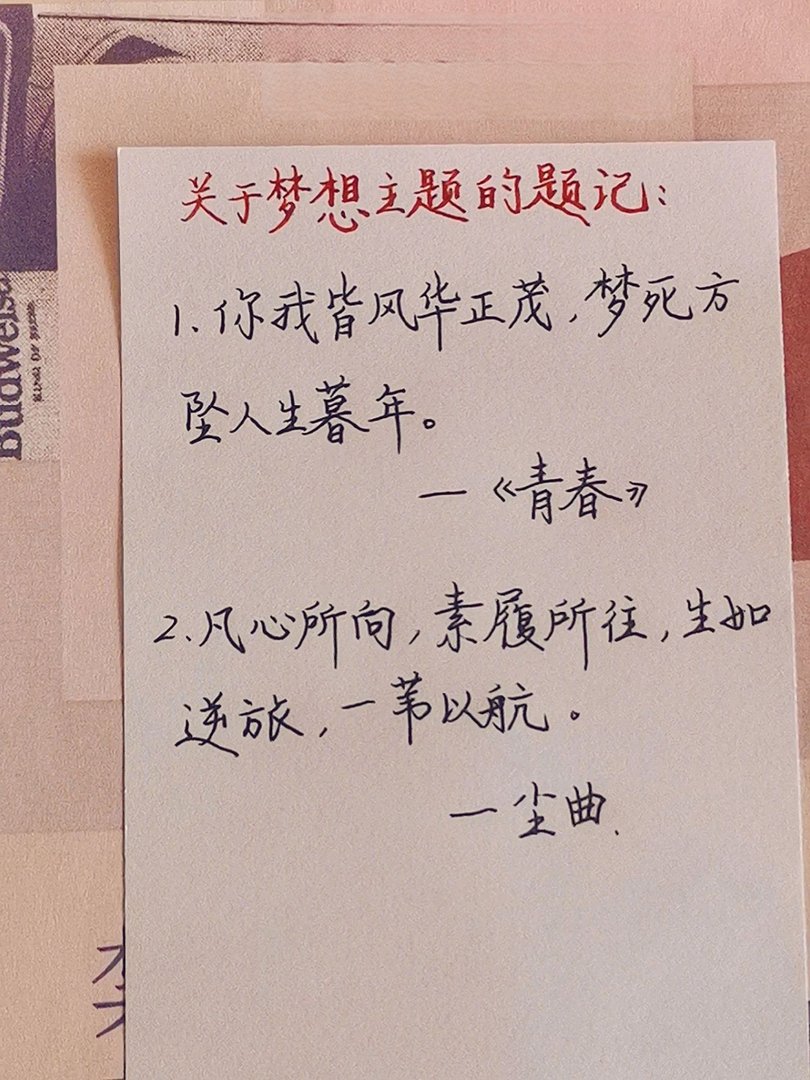 关于梦想主题的题记:
1、你我皆风华正茂,梦死方
坠人生暮年。
—《青春》
2、凡心所向,素履所往,生如
逆旅,一苇以航。
—尘曲.
Budweiser